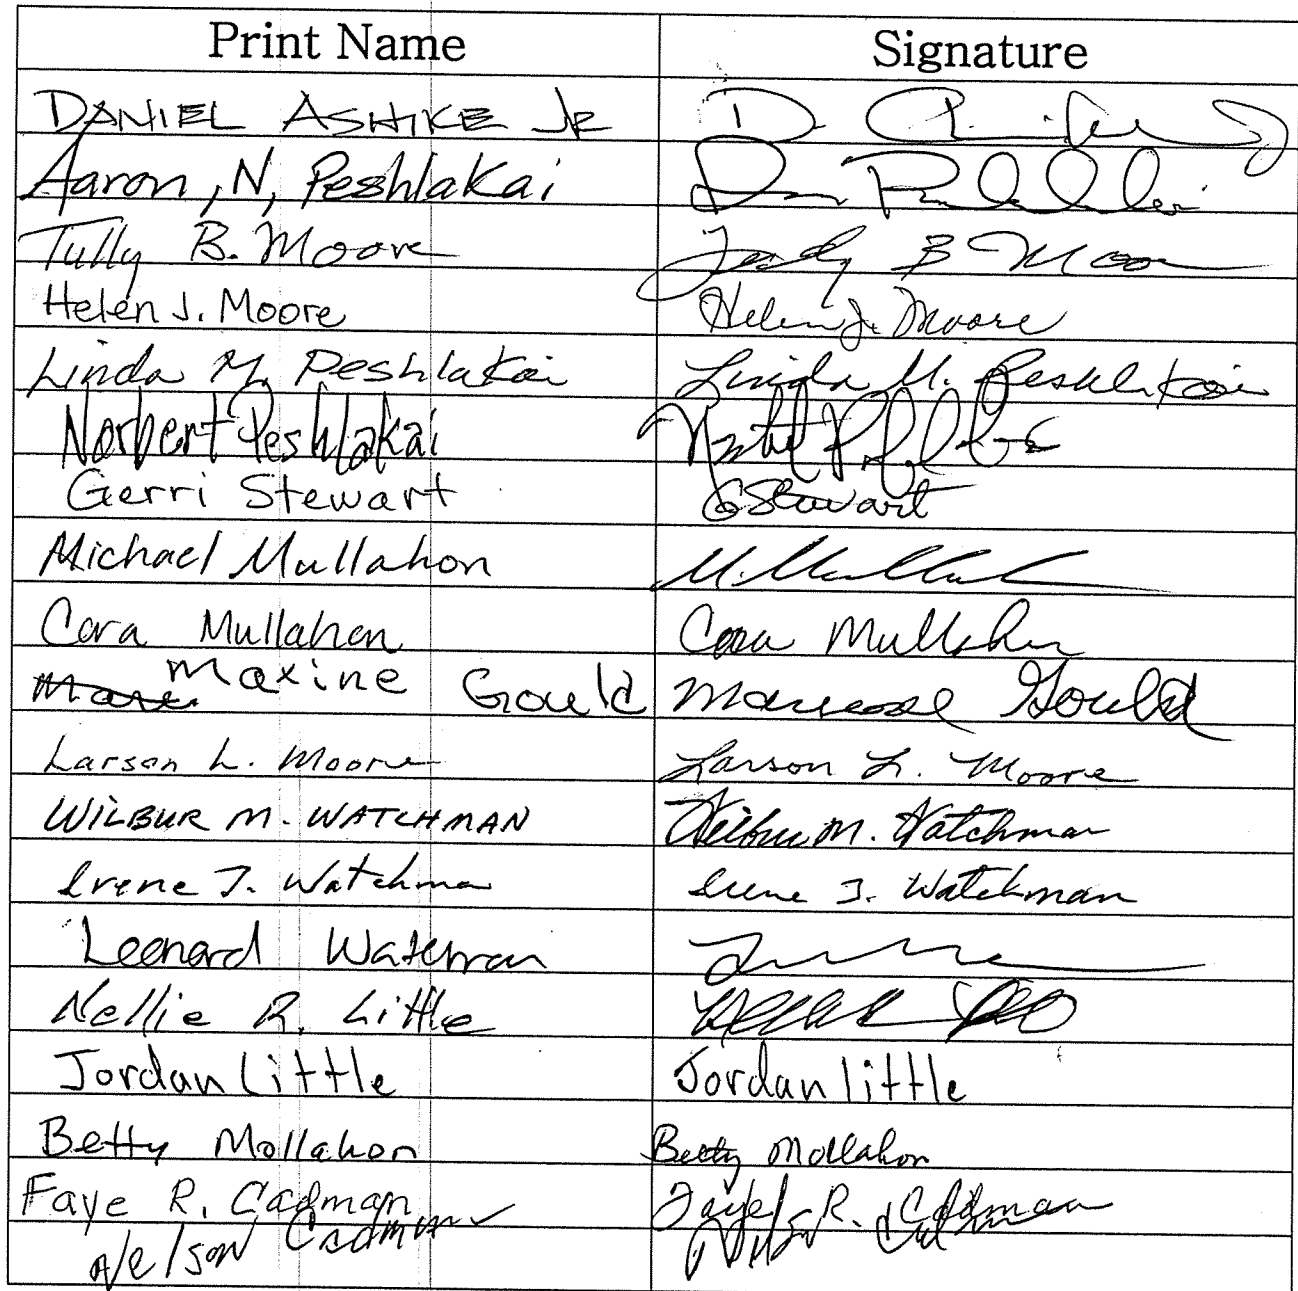 Print Name Signature
DANIEL ASHIKE JR D.
Aaron, N, Peshlakai
Tully B. Moore Tully B Moore
Helen J. Moore Helen J. Moore
Linda M. Peshlakai Linda M. Peshlakai
Norbert Peshlakai
Gerri Stewart GStewart
Michael Mullahon M. Mullah
Cora Mullahon Cora Mullahon
Maxine Gould Maxine Gould
Larson L. Moore Larson L. Moore
WILBUR M. WATCHMAN Wilbur M. Watchman
Irene J. Watchman Irene J. Watchman
Leonard Watchman
Nellie R. Little
Jordan Little Jordan little
Betty Mollahon Betty Mollahon
Faye R. Cadman Faye R. Cadman
Nelson Cadman Nelson Cadman